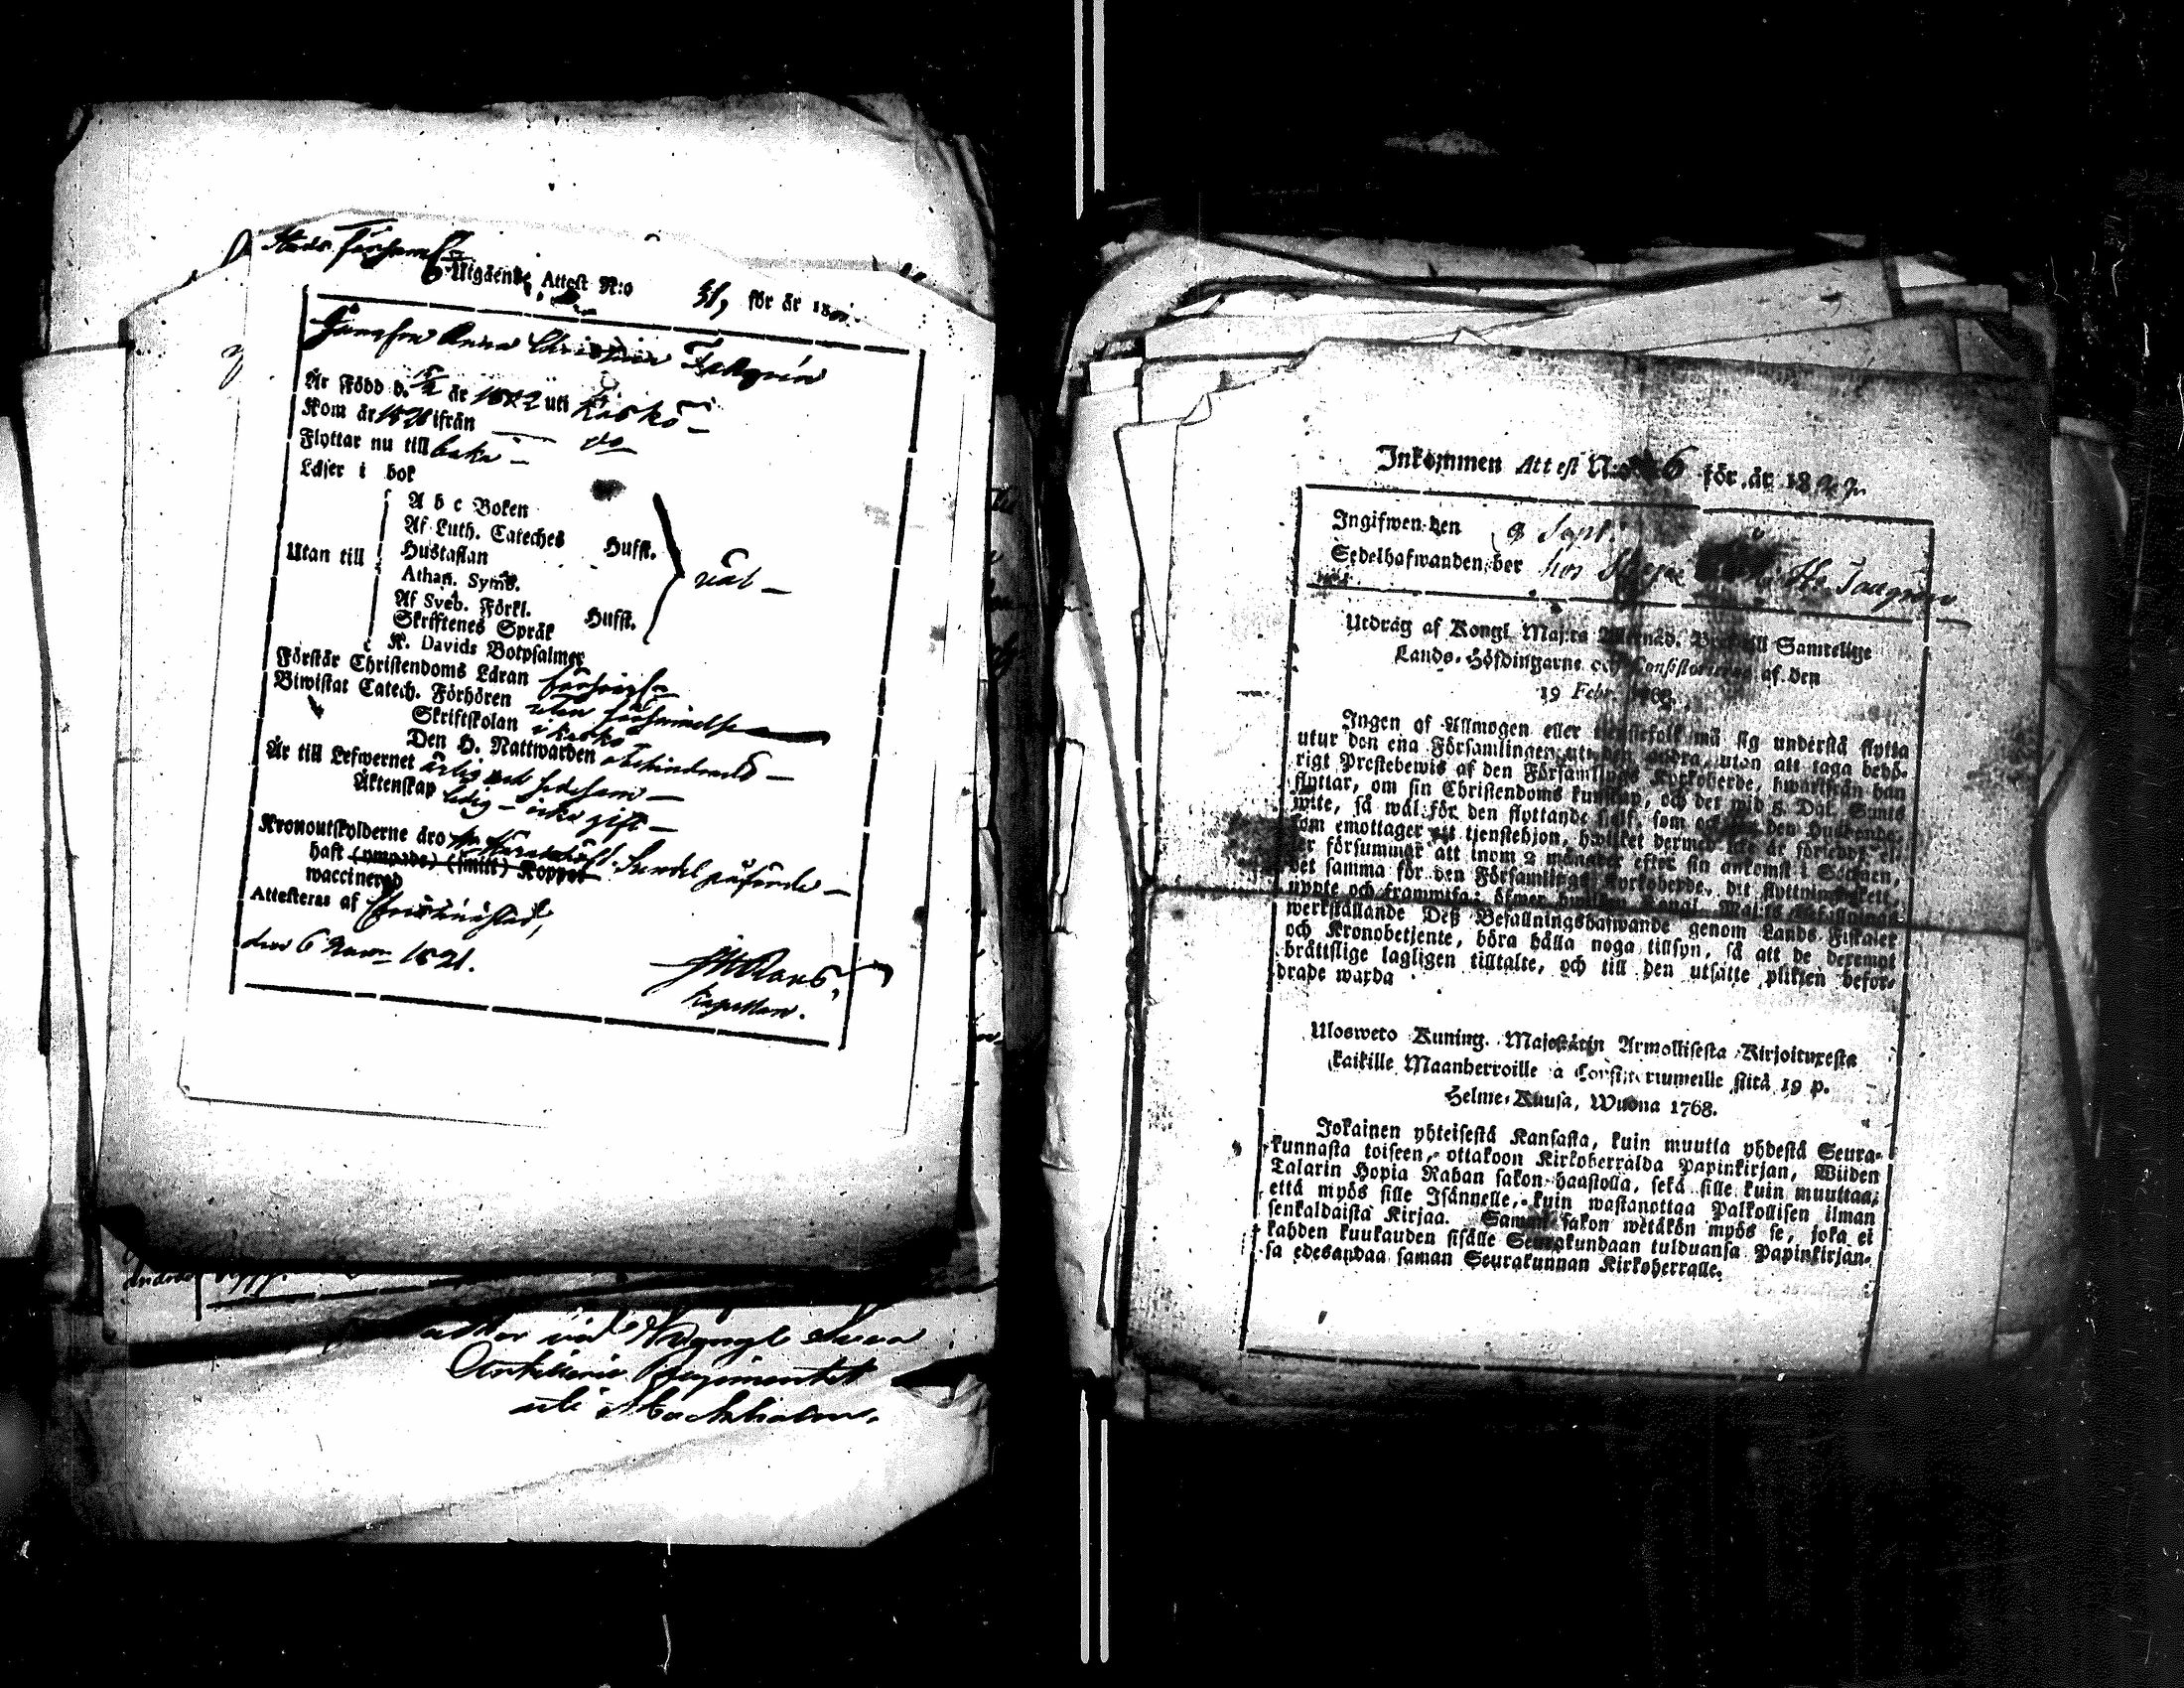 Stads Församl.
Utgående Attest N:o 31, för år 18
Jungfrun Anna Christina Fallgrén
År Född d. år 1802 uti Kaskö
Kom år 1820 ifrån do
Flyttar nu till baka
Läser i bok
A b c Boken
Af Luth. Cateches Husfl.
Utan till Hustaflan
Athan. Symb. väl
Af Sveb. Förkl.
Skriftenes Språk Husfl.
K. Davids Botpsalmer
Förstår Christendoms Läran förswarl.
Biwistat Catech. Förhören utan försummelse
Skriftskolan i Kaskö
Den H. Nattwarden obehindradt
Är till Lefwernet ärlig och sedesam
Äktenskap ledig - icke gift
Kronoutskylderne äro
haft (ympade) (smitt) Koppor
waccinered
Attesteras af Christinestad,
den 6 Nov. 1821.
Kapellan.
wid Wendes
Artillerie Regimentet
uti Stockholm.
Inkommen Attest N:o 6 för år 18
Ingifwen den 9 Sept:
Sedelhafwanden bor hos
Utdrag af Kongl. Maj:ts Allernåd. Bref till Samtelige
Lands-Höfdingarne och Consistorierne af den
19 Febr. 1768.
Ingen af Allmogen eller tjenstefolk må sig understå flytta
utur den ena Församlingen uti den andra, utan att taga behö-
rigt Prestebewis af den Församlings Kyrkoherde, hwarifrån han
flyttar, om sin Christendoms kunskap, och det wid 5 Dal. S:mts
wite, så wäl för den flyttande sielf, som ock för den Husbonde,
som emottager ett tjenstehjon, hwilket dermed icke är försedt, el-
ler försummar att inom 2 månader efter sin ankomst i Socknen,
det samma för den Församlings Kyrkoherde, dit flyttningen skett,
uppte och framwisa; öfwer hwilken Kongl. Maj:ts Befallnings
werkställande Deß Befallningshafwande genom Lands Fiskaler
och Kronobetjente, böra hålla noga tillsyn, så att de deremot
bråttslige lagligen tilltalte, och till den utsatte plikten befor-
drade warda
Ulosweto Kuning. Majestätin Armollisesta Kirjoituxesta
kaikille Maanherroille ja Consistoriumeille siitä 19 p.
Helme-Kuusa, Wuona 1768.
Jokainen yhteisestä Kansasta, kuin muutta yhdestä Seura-
kunnasta toiseen, ottakoon Kirkoherralda Papinkirjan, Wiiden
Talarin Hopia Rahan sakon haastolla, sekä sille kuin muuttaa,
että myös sille Isännelle, kuin wastanottaa Palkollisen ilman
senkaldaista Kirjaa. Saman sakon wetäkön myös se, joka ei
kahden kuukauden sisälle Seurakundaan tulduansa Papinkirjan-
sa edesandaa saman Seurakunnan Kirkoherralle.